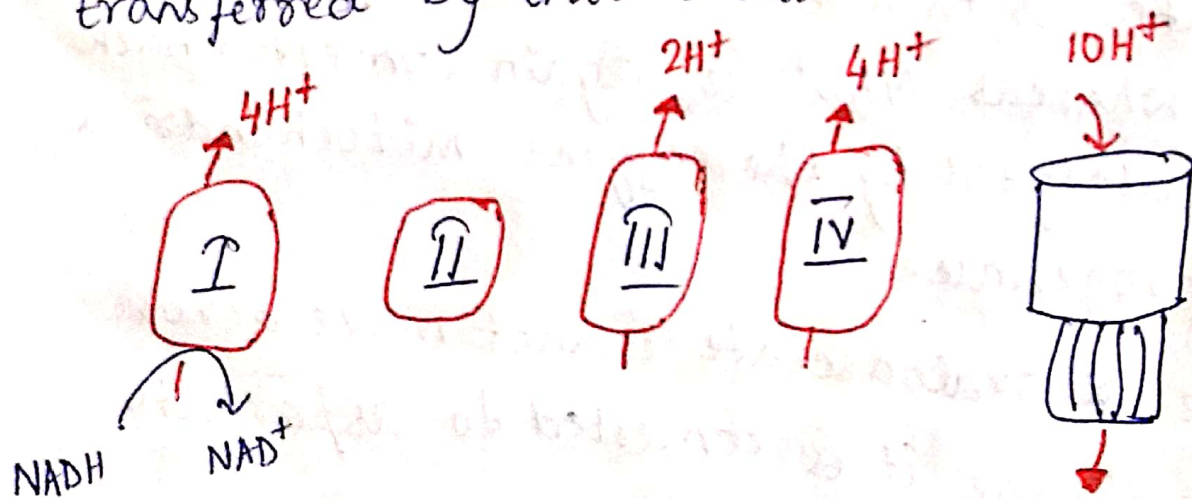 transferred by
4H⁺
2H⁺
4H⁺
10H⁺
I
II
III
IV
NADH
NAD⁺